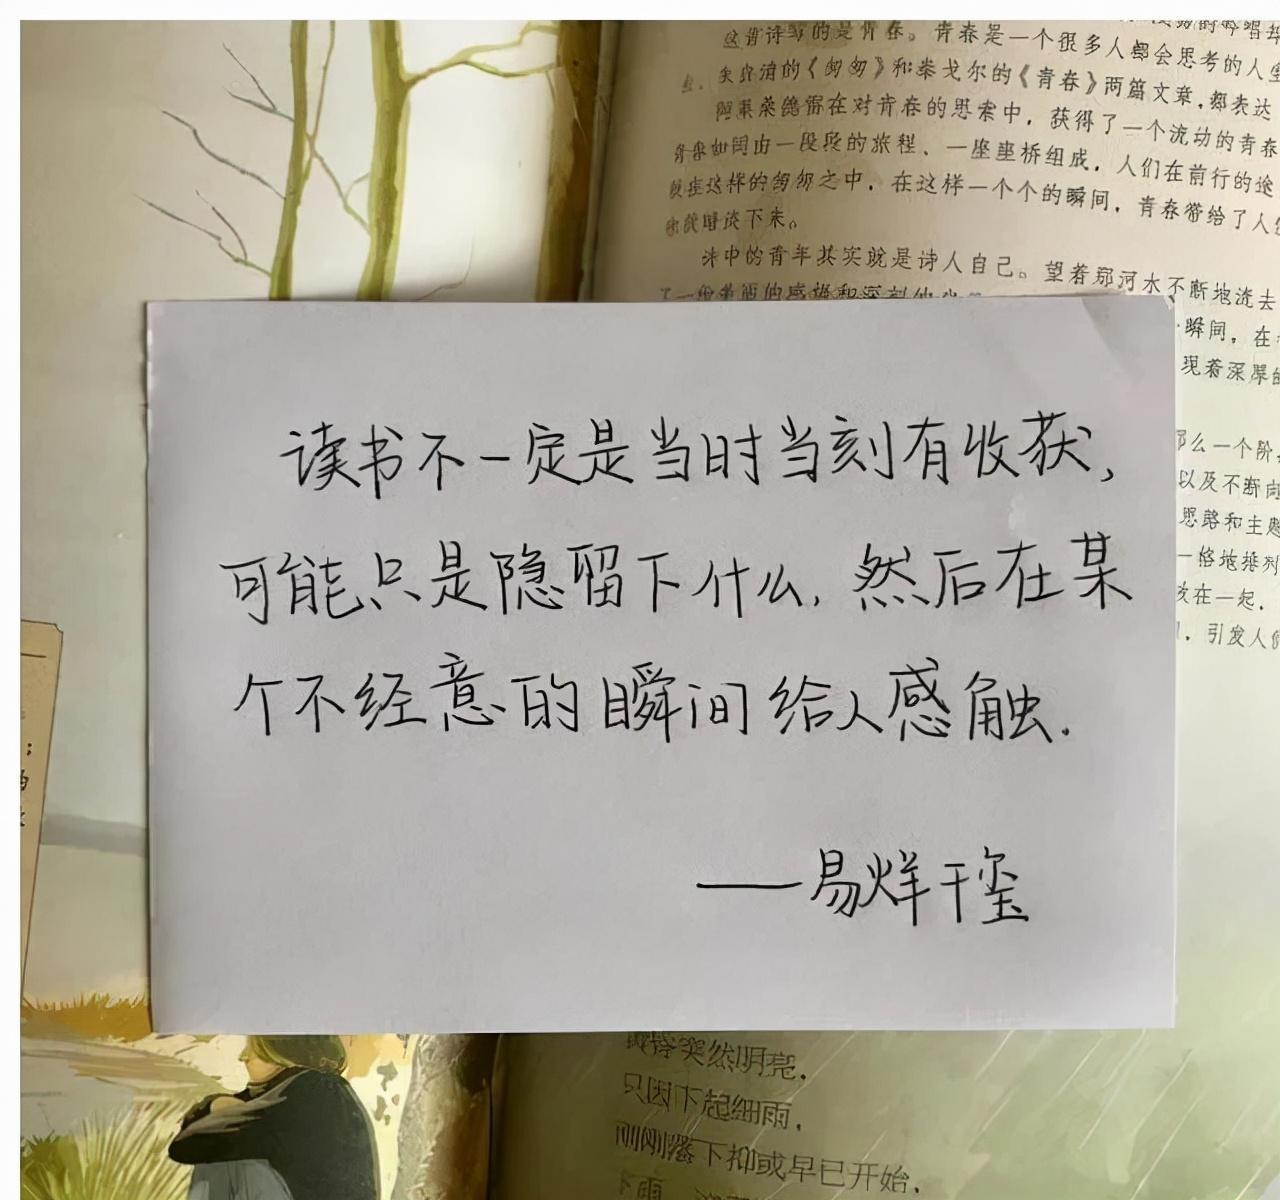 青春。青春是一个很多人都会思考的人生
的《匆匆》和泰戈尔的《青春》两篇文章，都表达
在对青春的思索中，获得了一个流动的青春
一段段的旅程、一座座桥组成，人们在前行的途
之中，在这样一个个的瞬间，青春带给了人们
下来。
诗中的青年其实就是诗人自己。望着那河水不断地流去
瞬间，在
现着深厚的
那么一个阶
以及不断向
思路和主题
一格地排列
放在一起，
引发人们
读书不一定是当时当刻有收获，
可能只是隐留下什么，然后在某
个不经意的瞬间给人感触.
——易烊千玺
突然明亮，
只因下起细雨，
刚刚落下抑或早已开始，